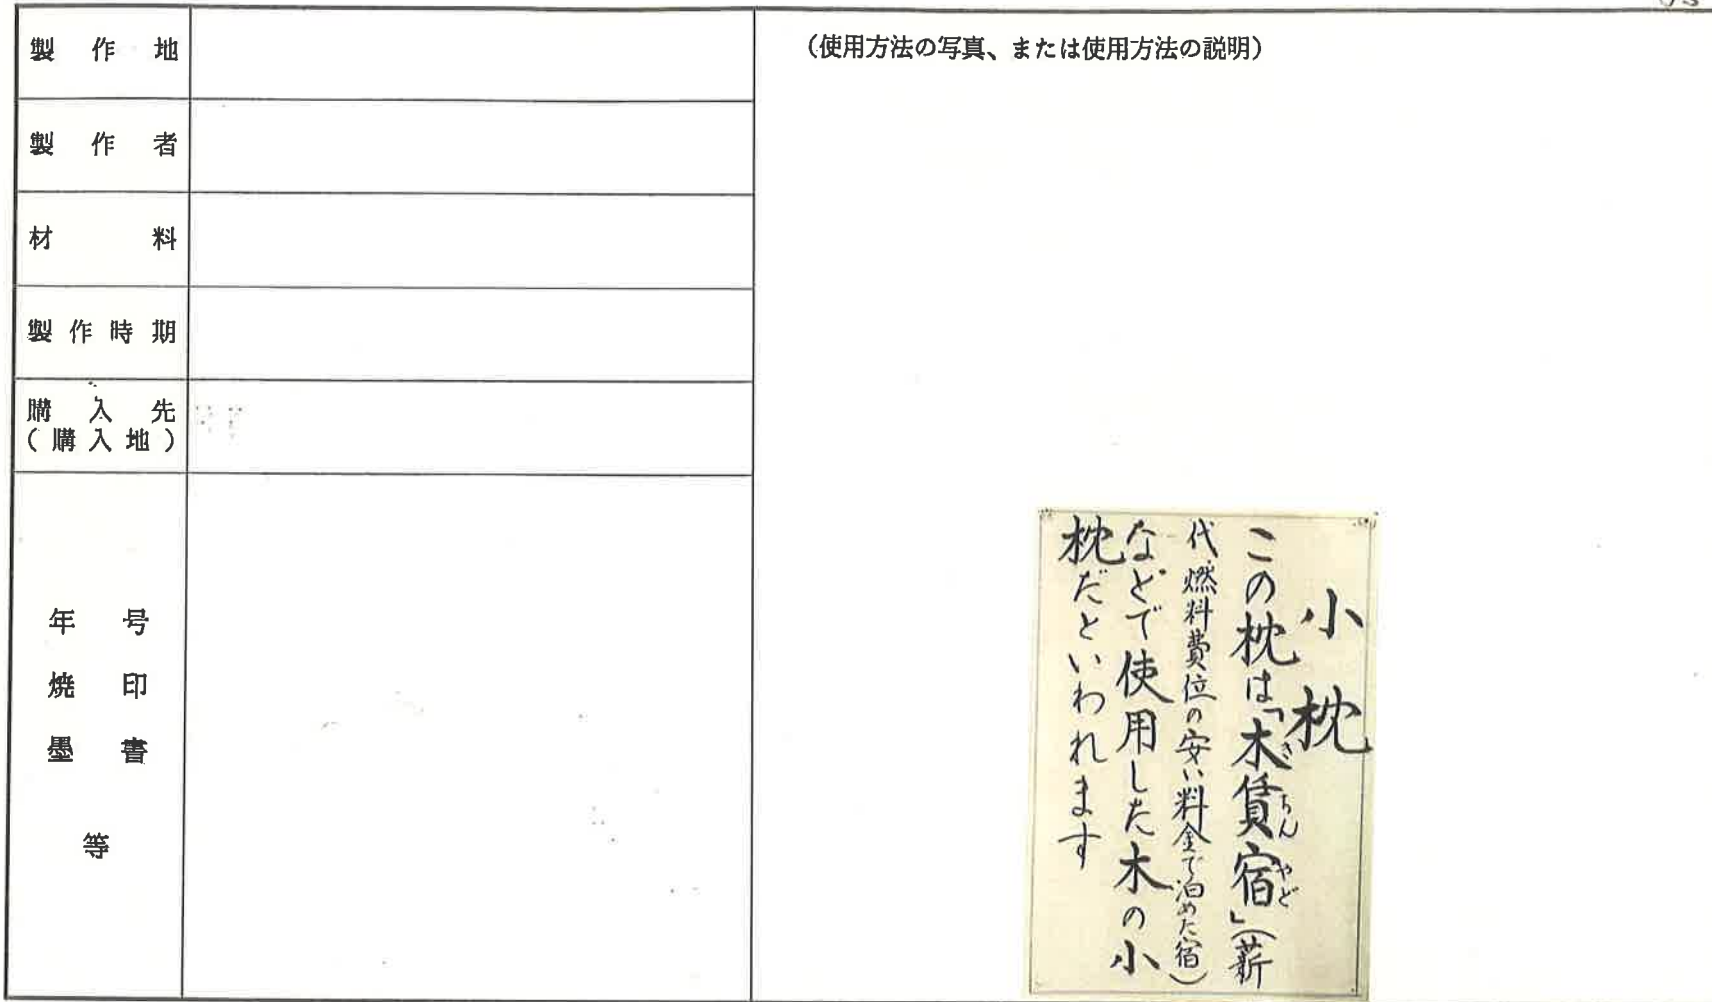 製作地
製作者
材料
製作時期
購入先
(購入地)
年号
焼印
墨書
等
(使用方法の写真、または使用方法の説明)
小枕
この枕は「木賃宿」(薪
きちんやど
代、燃料費位の安い料金で泊めた宿)
などで使用した木の小
枕だといわれます